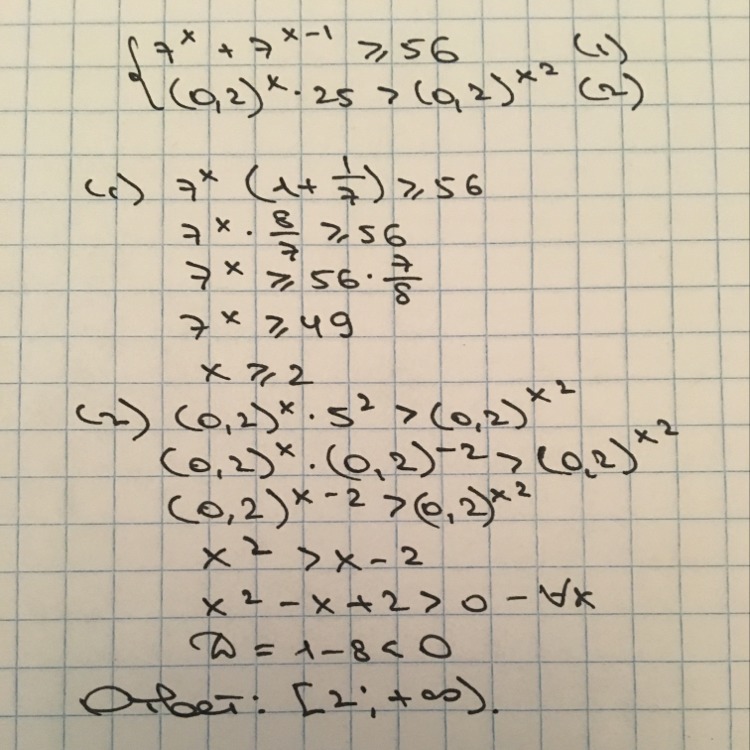 { 7^x + 7^(x-1) ⩾ 56 (1)
(0,2)^x · 25 > (0,2)^(x^2) (2)
(1) 7^x (1 + 1/7) ⩾ 56
7^x · 8/7 ⩾ 56
7^x ⩾ 56 · 7/8
7^x ⩾ 49
x ⩾ 2
(2) (0,2)^x · 5^2 > (0,2)^(x^2)
(0,2)^x · (0,2)^(-2) > (0,2)^(x^2)
(0,2)^(x-2) > (0,2)^(x^2)
x^2 > x - 2
x^2 - x + 2 > 0 - ∀x
D = 1 - 8 < 0
Ответ: [2; +∞).